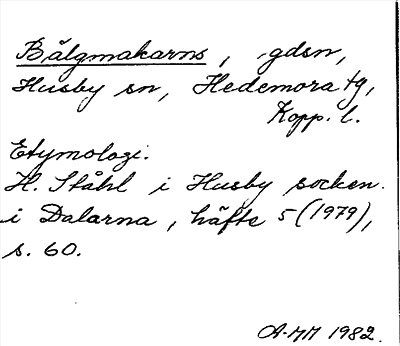 Bälgmakarns, gdsn,
Husby sn, Hedemora tg,
Kopp. l.
Etymologi.
H. Ståhl i Husby socken
i Dalarna, häfte 5 (1979),
s. 60.
A-MM 1982.